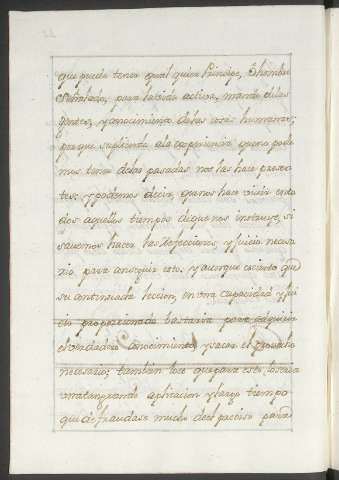 que puede tener qual quier Principe, ò hombre
señalado, para la vida activa, mando de las
gentes, y conocimiento de las cosas humanas;
porque supliendo a la experiencia que no pode
mos tener de las pasadas nos las hace presen
tes: y podemos decir, que nos hace vivir en to
dos aquellos tiempos de que nos instruye, si
savemos hacer las reflecciones, y juicio necesa
rio para conseguir esto. y aunque es cierto que
su continuada leccion, en una capacidad y jui
cio proporcionado bastaria para adquirir
el verdadero conocimiento, y sacar el provecho
necesario; tambien lo es que para esto, es
una tan grande aplicacion y largo tiempo
que defraudase mucho del preciso para